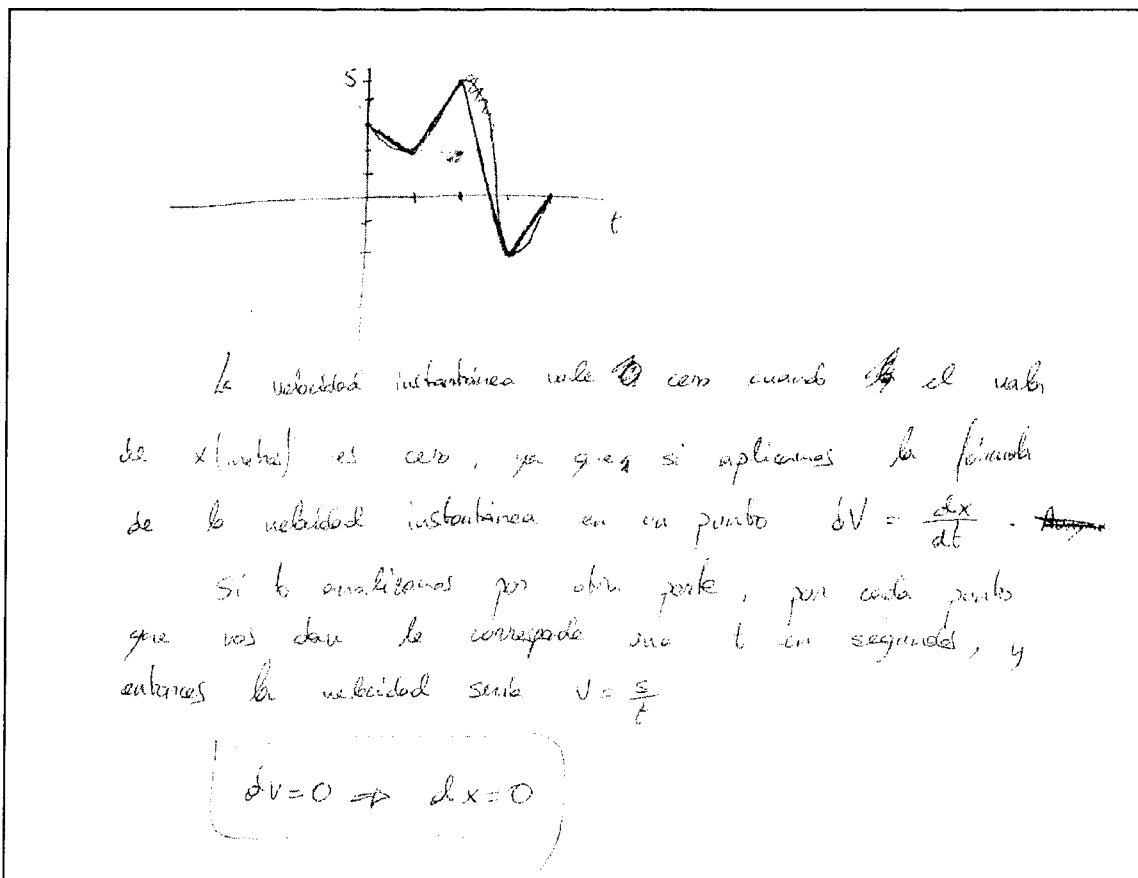 S
t
La velocidad instantánea vale cero cuando el valor
de x(metros) es cero, ya que, si aplicamos la fórmula
de la velocidad instantánea en un punto dV = dx/dt.
Si lo analizamos por otra parte, por cada punto
que nos dan le corresponde una t en segundos, y
entonces la velocidad sería V = s/t
dv=0 ⇒ dx=0